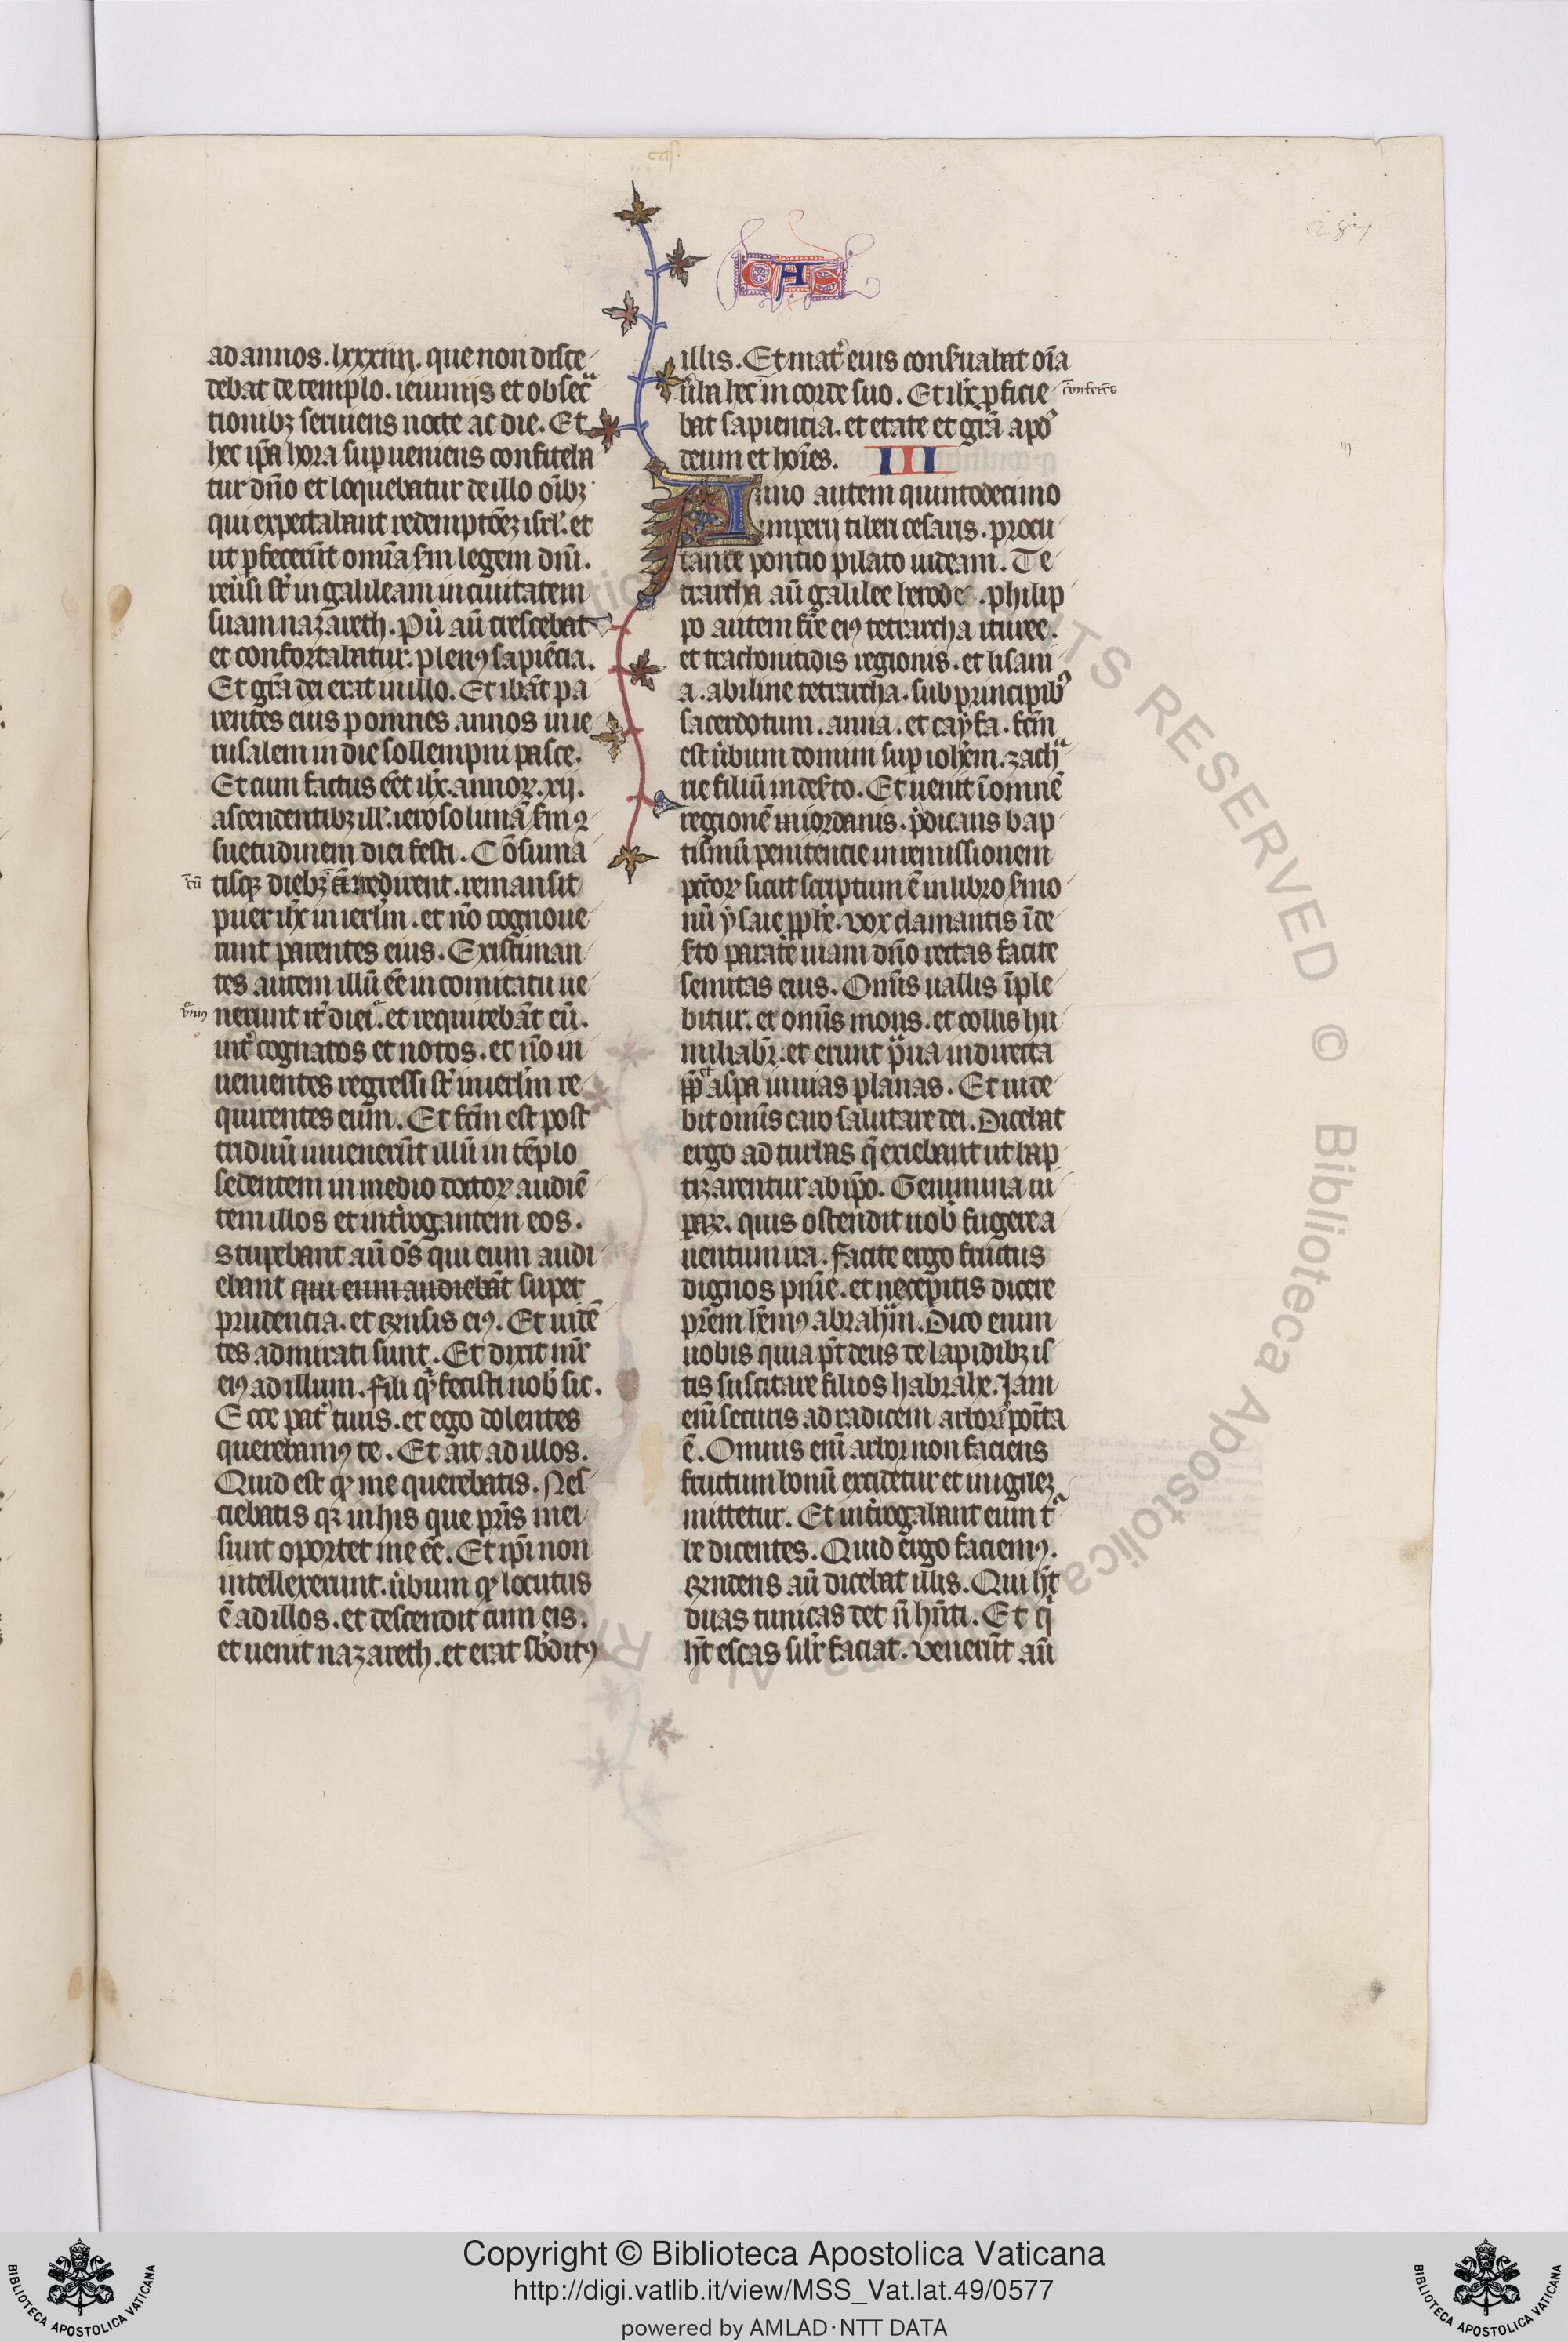 CAS
287
ad annos . lxxxiiii . que non disce
debat de templo . ieiuniis et obsecᵃ
tionibꝫ seruiens nocte ac die . Et
hec ip̄a hora supueniens confiteba
tur dn̄o et loquebatur de illo oībꝫ
qui expectabant redemptōeꝫ isrl̓ . et
ut pfecerūt omīa s̄m legem dn̄i .
reūsi st̄ in galileam in ciuitatem
suam nazareth . Pu̓ aū crescebat
et confortabatur . plenꝰ sapiēcia .
Et grā dei erat in illo . Et ibāt pa
rentes eius p omnes annos in ie
rusalem in die sollempni pasce .
Et cum factus eēt ih̄c . annoꝝ . xij .
ascendentibꝫ ill̓ . ierosolimā s̄m ꝯ
suetudinem diei festi . Cōsuma
tisqꝫ diebꝫ redirent . remansit
cū
puer ih̄c in ierl̄m . et nō cognoue
runt parentes eius . Existiman
tes autem illū eē in comitatu ue
nerunt it̓ diei . et requirebāt eū .
int̓ cognatos et notos . et nō in
uenientes regressi st̄ in ierl̄m re
quirentes eum . Et fcm̄ est post
triduū inuenerūt illū in tēplo
sedentem in medio doctoꝝ audiē
tem illos et int̓rogantem eos .
Stupebant aū oēs qui eum audi
ebant qui eum audiebāt super
prudencia . et rensis eiꝰ . Et uidē
tes admirati sunt . Et dixit mr̄
eiꝰ ad illum . fili qͥd fecisti nob̓ sic .
Ecce pat̓ tuus . et ego dolentes
querebamꝰ te . Et ait ad illos .
Quid est qͩ me querebatis . Nes
ciebatis qꝛ in his que pr̄is mei
sunt oportet me eē . Et ip̄i non
intellexerunt . u̓bum qͩ locutus
ē ad illos . et descendit cum eis .
et uenit nazareth . et erat sb̓ditꝰ
illis . Et mat̓ eius conseruabat oīa
u̓ba hec in corde suo . Et ih̄c pficie
conferēs
bat sapiencia . et etate et grā apᵒ
deum et hoīes . III
Anno autem quintodecimo
imperij tiberi cesaris . procu
rante pontio pilato iudeam . Te
trarcha aū galilee herode . philip
po autem fr̄e eiꝰ tetrarcha ituree .
et traconitidis regionis . et lisani
a . abiline tetrarcha . sub principibꝰ
sacerdotum . anna . et cayfa . fcm̄
est u̓bum domini sup ioh̄em . zachᵃ
rie filiū in des̓to . Et uenit ī omnē
regionē iordanis . p̄dicans bap
tismū penitencie in remissionem
pcc̄oꝝ sicut scriptum ē in libro s̓mo
nū ysaie pph̄e . vox clamantis ī de
s̓to parate uiam dn̄o rectas facite
semitas eius . Om̄is uallis īple
bitur . et om̄is mons . et collis hu
miliabr̄ . et erunt pͣua in directa
et aspa in uias planas . Et uide
bit om̄is caro salutare dei . Dicebat
ergo ad turbas q̄ exiebant ut bap
tizarentur ab ip̄o . Genimina ui
paꝝ . quis ostendit uob̓ fugere a
uentura ira . facite ergo fructus
dignos pn̄ie . et ne cepitis dicere
pr̄em hem̄ꝰ abraham . Dico enim
uobis quia pt̄ deus de lapidibꝫ is
tis suscitare filios habrahe . Jam
enī securis ad radicem arboꝝ poīta
ē . Omnis enī arbor non faciens
fructum bonū excidetur et in igneꝫ
mittetur . Et int̓rogabant eum tᵘ
be dicentes . Quid ergo faciemꝰ .
rendens aū dicebat illis . Qui ht̄
duas tunicas det n̄ hn̄ti . Et qͥ
ht̄ escas silr̄ faciat . Venerūt aū
ALL RIGHTS RESERVED © Biblioteca Apostolica Vaticana
Copyright © Biblioteca Apostolica Vaticana
http://digi.vatlib.it/view/MSS_Vat.lat.49/0577
powered by AMLAD·NTT DATA
BIBLIOTECA APOSTOLICA VATICANA
BIBLIOTECA APOSTOLICA VATICANA